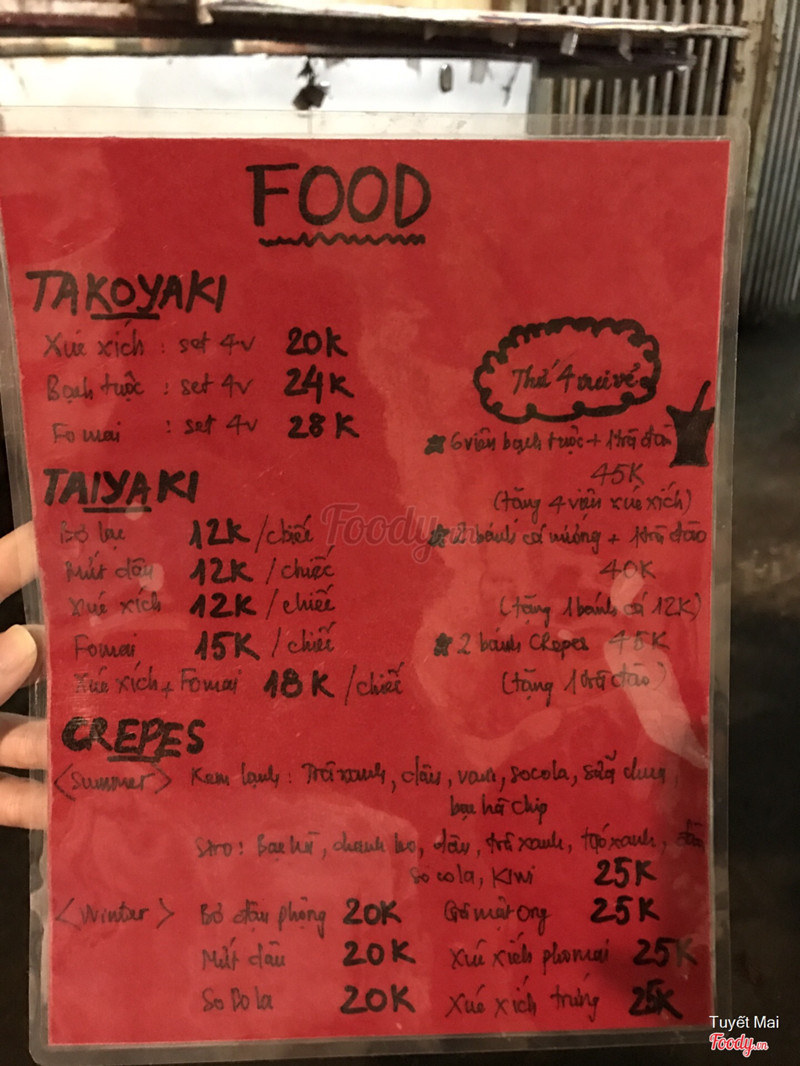 FOOD
TAKOYAKI
Xúc xích : set 4v 20K
Bạch tuộc : set 4v 24K
Fomai : set 4v 28K
Thứ 4 vui vẻ
6 viên bạch tuộc + 1 trà đào
45K
(tặng 4 viên xúc xích)
bánh cá nướng + 1 trà đào
40K
(tặng 1 bánh cá 12K)
2 bánh Crepes 45K
(tặng 1 trà đào)
TAIYAKI
Bơ lạc 12K /chiếc
Mứt dâu 12K /chiếc
Xúc xích 12K /chiếc
Fomai 15K /chiếc
Xúc xích + Fomai 18K /chiếc
CREPES
<Summer> Kem lạnh : Trà xanh, dâu, vani, socola, sữa dừa,
bạc hà chip
Siro : Bạc hà, chanh leo, dâu, trà xanh, táo xanh,
Socola, Kiwi 25K
<Winter> Bơ đậu phộng 20K mật ong 25K
Mứt dâu 20K Xúc xích phomai 25K
Socola 20K Xúc xích trứng 25K
Foody.vn
Tuyết Mai
Foody.vn